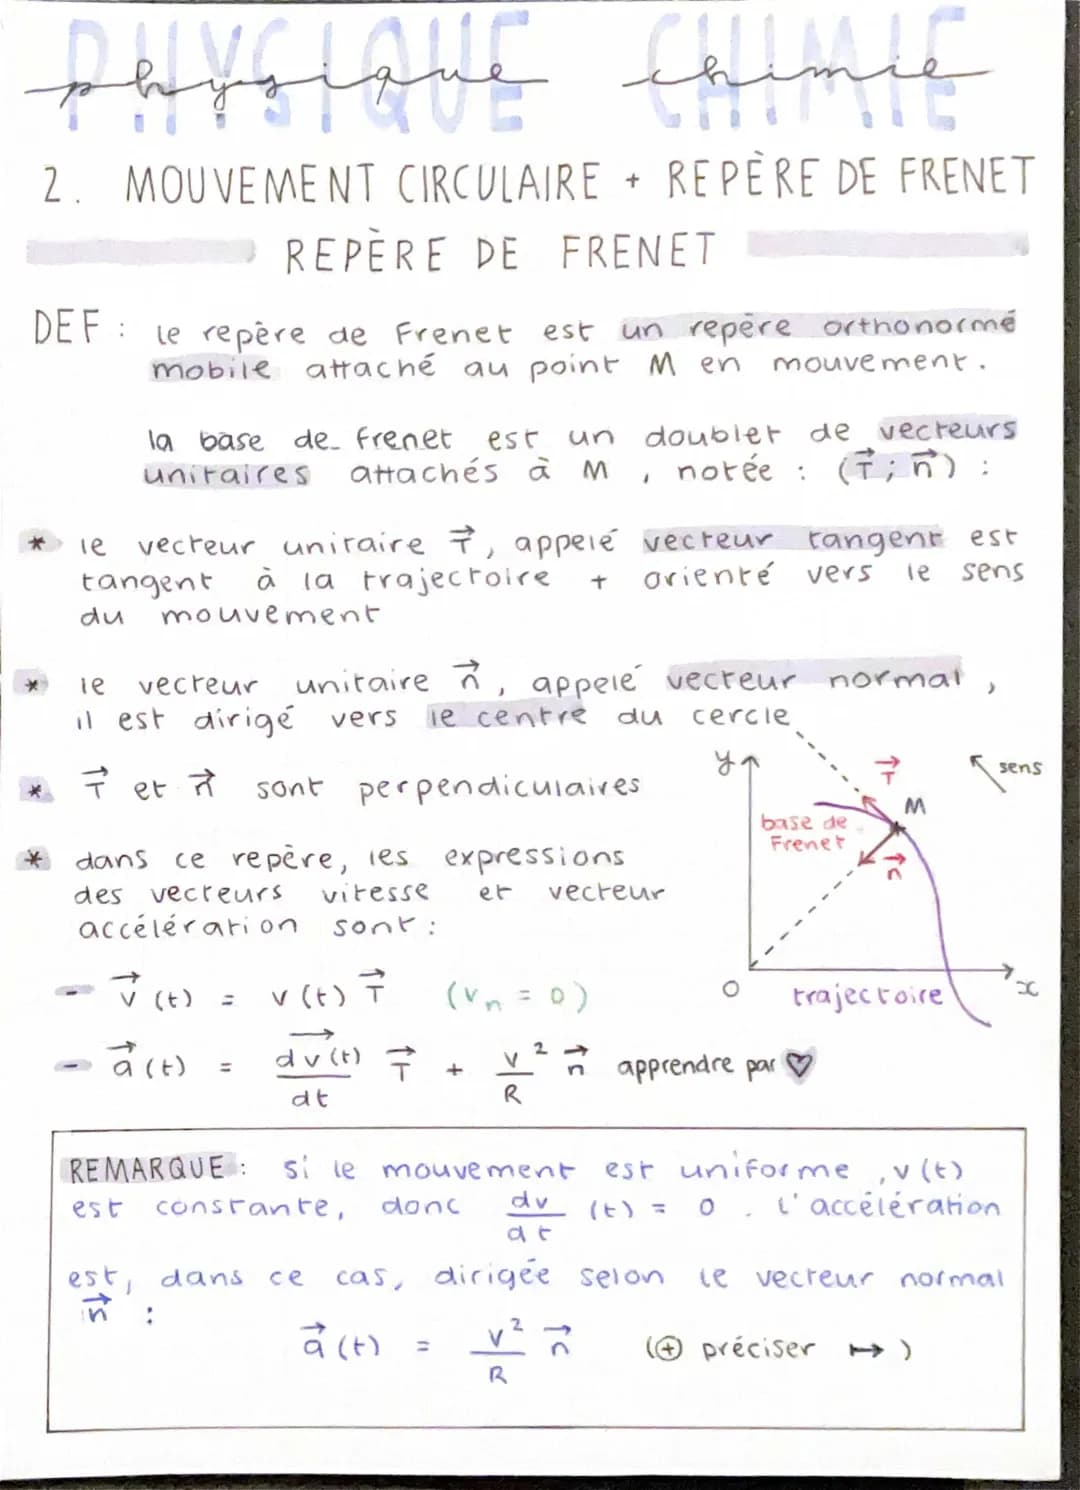 PHYSIQUE CHIMIE
physique chimie
2. MOUVEMENT CIRCULAIRE + REPÈRE DE FRENET
REPÈRE DE FRENET
DEF : le repère de Frenet est un repère orthonormé
mobile attaché au point M en mouvement.
la base de frenet est un doublet de vecteurs
unitaires attachés à M, notée : (T⃗ ; n⃗) :
* le vecteur unitaire T⃗, appelé vecteur tangent est
tangent à la trajectoire + orienté vers le sens
du mouvement
* le vecteur unitaire n⃗, appelé vecteur normal,
il est dirigé vers le centre du cercle
* T⃗ et n⃗ sont perpendiculaires
y
T⃗
sens
M
base de
Frenet
n⃗
O
trajectoire
x
* dans ce repère, les expressions
des vecteurs vitesse et vecteur
accélération sont :
- v⃗(t) = v(t) T⃗ (vₙ = 0)
- a⃗(t) = d⃗v⃗(t)/dt T⃗ + v²/R n⃗ apprendre par ♡
REMARQUE : si le mouvement est uniforme, v(t)
est constante, donc dv/dt (t) = 0. L'accélération
est, dans ce cas, dirigée selon le vecteur normal
n⃗ :
a⃗(t) = v²/R n⃗ (⊕ préciser ↦)